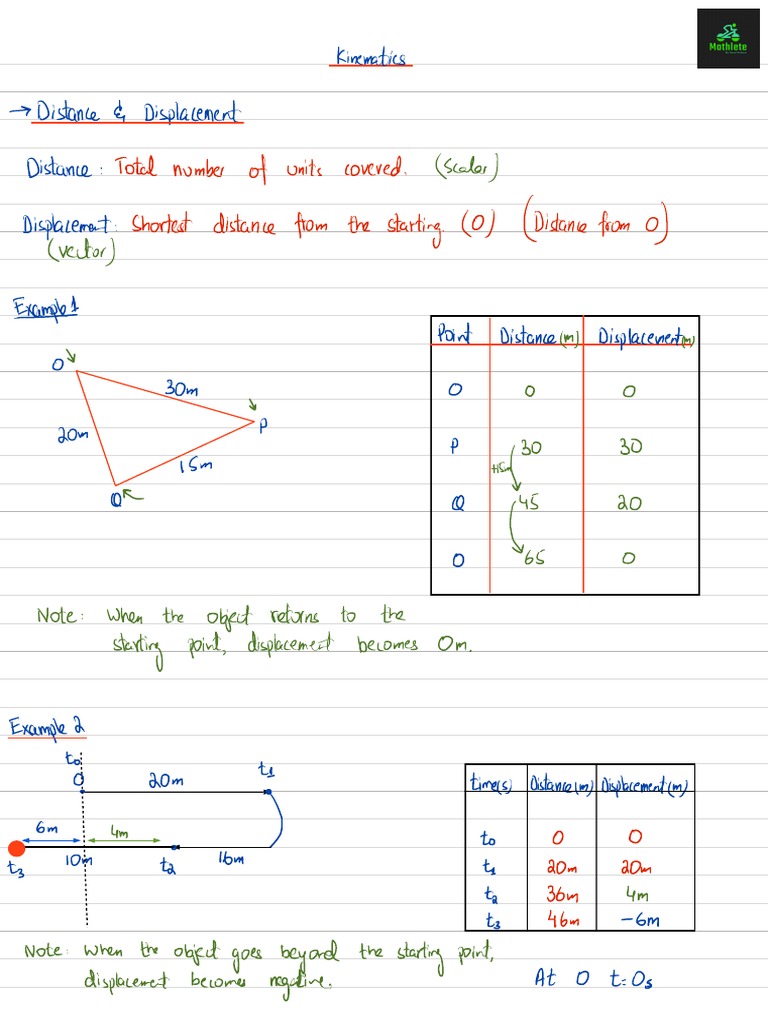 Mathlete
Kinematics
→ Distance & Displacement
Distance: Total number of units covered. (scalar)
Displacement: Shortest distance from the starting. (O) (Distance from O)
(vector)
Example 1
O
30m
P
20m
15m
Q
Point Distance (m) Displacement (m)
O 0 0
P 30 30
+15m
Q 45 20
O 65 0
Note: When the object returns to the
starting point, displacement becomes 0m.
Example 2
t0
O
20m
t1
6m
4m
t3
10m
t2
16m
time(s) Distance (m) Displacement (m)
t0 0 0
t1 20m 20m
t2 36m 4m
t3 46m -6m
Note: When the object goes beyond the starting point,
displacement becomes negative.
At O t=0s